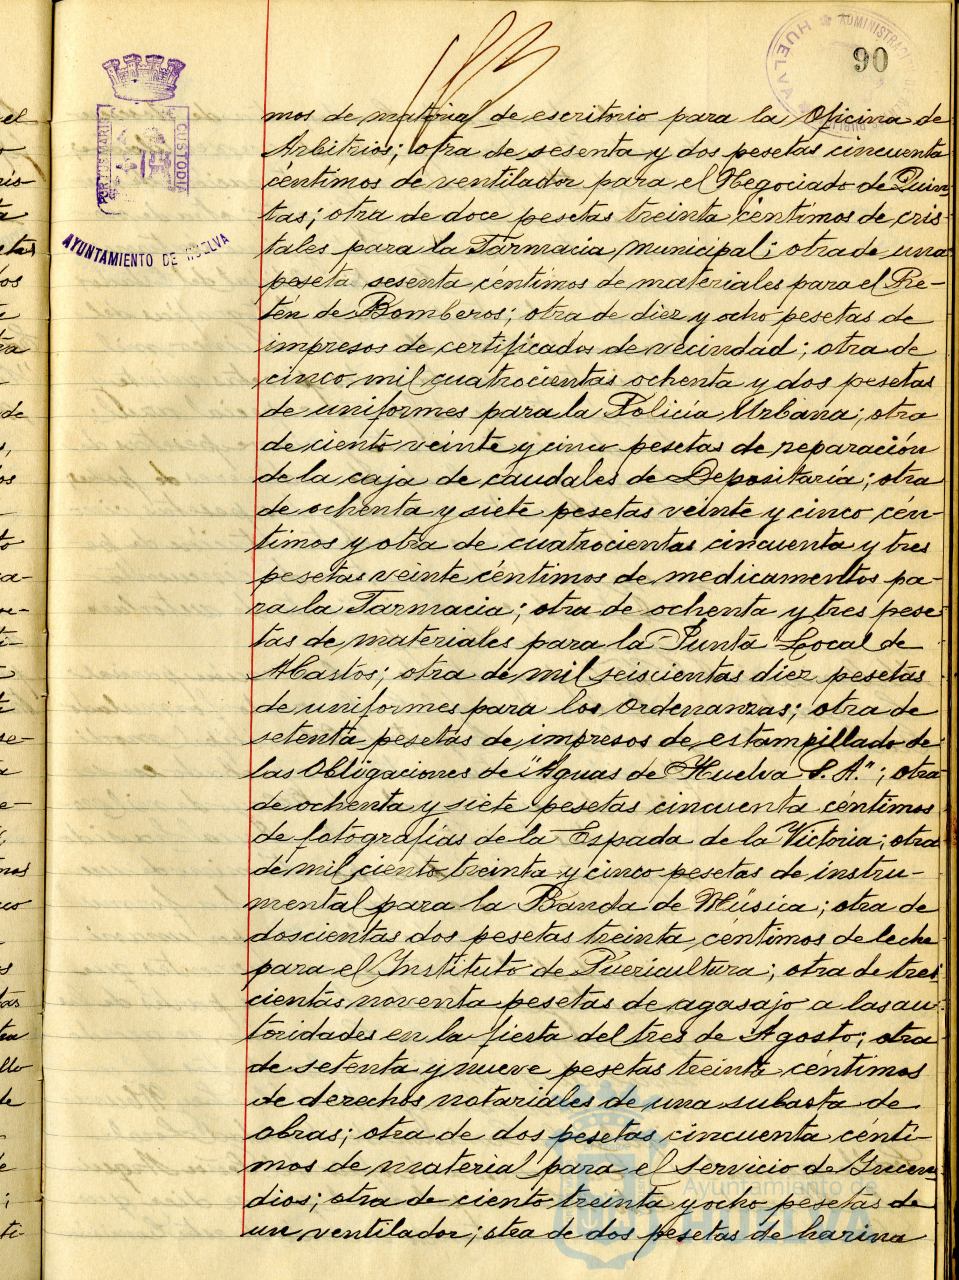 90
PORTUS MARIS
CUSTODIA
AYUNTAMIENTO DE HUELVA
HUELVA
mos de material de escritorio para la Oficina de
Arbitrios; otra de sesenta y dos pesetas cincuenta
céntimos de ventilador para el Negociado de Quin-
tas; otra de doce pesetas treinta centimos de cris-
tales para la Farmacia municipal; otra de una
peseta sesenta céntimos de materiales para el Re-
tén de Bomberos; otra de diez y ocho pesetas de
impresos de certificados de vecindad; otra de
cinco mil cuatrocientas ochenta y dos pesetas
de uniformes para la Policía Urbana; otra
de ciento veinte y cinco pesetas de reparación
de la caja de caudales de Depositaría; otra
de ochenta y siete pesetas veinte y cinco cén-
timos y otra de cuatrocientas cincuenta y tres
pesetas veinte céntimos de medicamentos pa-
ra la Farmacia; otra de ochenta y tres pese-
tas de materiales para la Junta Local de
Abastos; otra de mil seiscientas diez pesetas
de uniformes para los Ordenanzas; otra de
setenta pesetas de impresos de estampillado de
las Obligaciones de "Aguas de Huelva S. A."; otra
de ochenta y siete pesetas cincuenta céntimos
de fotografías de la Espada de la Victoria; otra
de mil ciento treinta y cinco pesetas de instru-
mental para la Banda de Música; otra de
doscientas dos pesetas treinta centimos de leche
para el Instituto de Puericultura; otra de tres
cientas noventa pesetas de agasajo a las au-
toridades en la fiesta del tres de Agosto; otra
de setenta y nueve pesetas treinta céntimos
de derechos notariales de una subasta de
obras; otra de dos pesetas cincuenta cénti-
mos de material para el servicio de Incen-
dios; otra de ciento treinta y ocho pesetas de
un ventilador; otea de dos pesetas de harina
Ayuntamiento de
HUELVA